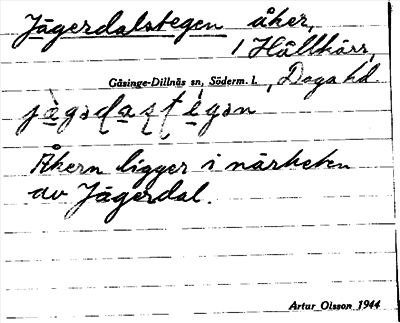 Jägerdalstegen åker,
1 Hållkärr,
Gåsinge-Dillnäs sn, Söderm. l. , Daga hd
Åkern ligger i närheten
av Jägerdal.
Artur Olsson 1944